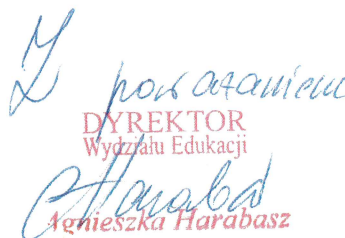 Z poważaniem
DYREKTOR
Wydziału Edukacji
Agnieszka Harabasz